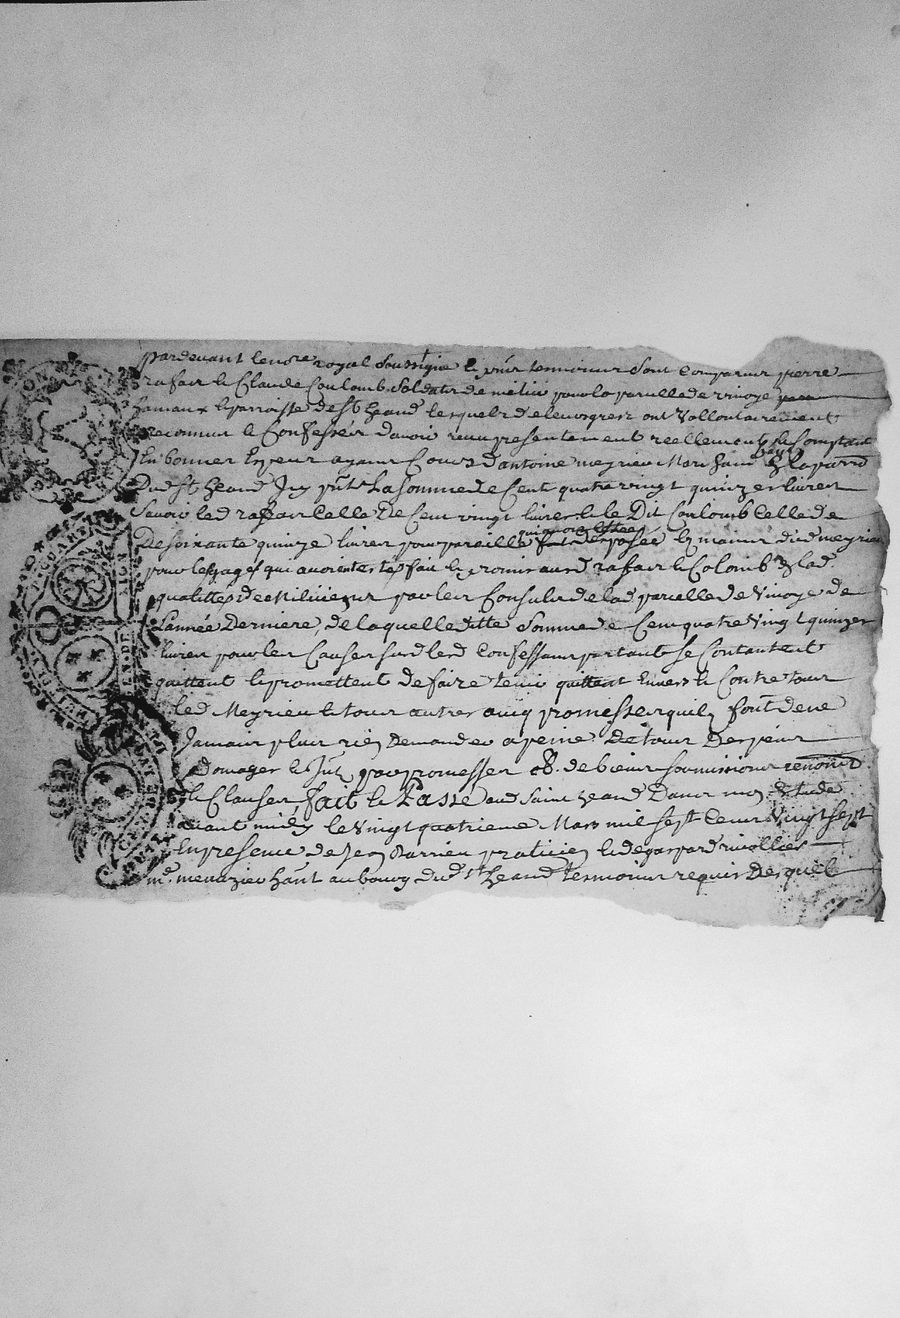 pardevant le no.re royal soussigné & pnts temoins sont comparus pierre
rafair & Claude Coulomb soldats de milice pour la parcelle de
hameaux & parroisse de St heand lesquels de leurs grez ont vollontairement
reconnus & Confessés d'avoir receu presentement reellement & Comptant
en bonnes Especes ayant Cours d'antoine meyrieu Marchand de la par.
Dud St heand Icy pnt La somme de Cent quatre vingt quinze livres
Savoir led rafair Celle De Cent vingt livres & le Dit Coulomb Celle de
De soixante quinze livres pour pareille deposée es mains dud meyrieu
pour les gages qui avoient estés fait & promis ausd rafair & Colomb
qualittés de Miliciens par les Consuls de lad parcelle de de
L'année Derniere, de laquelle ditte Somme de Cent quatre Vingt quinze
livres pour les Causes susd lesd Confessants partant se Contantent
quittent & promettent de faire tenir quittent Envers & Contre tous
led Meyrieu & tous autres avec promesses qu'ils font de ne
Jamais plus rien Demander a peine De tous Despens
Domages & Int par promesses &. de biens soumissions renon.on
& Clauses, fait & Passé aud Saint heand Dans mon Estude
avant midy le Vingt quatrieme Mars mil sept Cent Vingt sept
En presence de Jean praticien & de gaspard
me. menuzier ha.nt au bourg dud St heand temoins requis Desquels